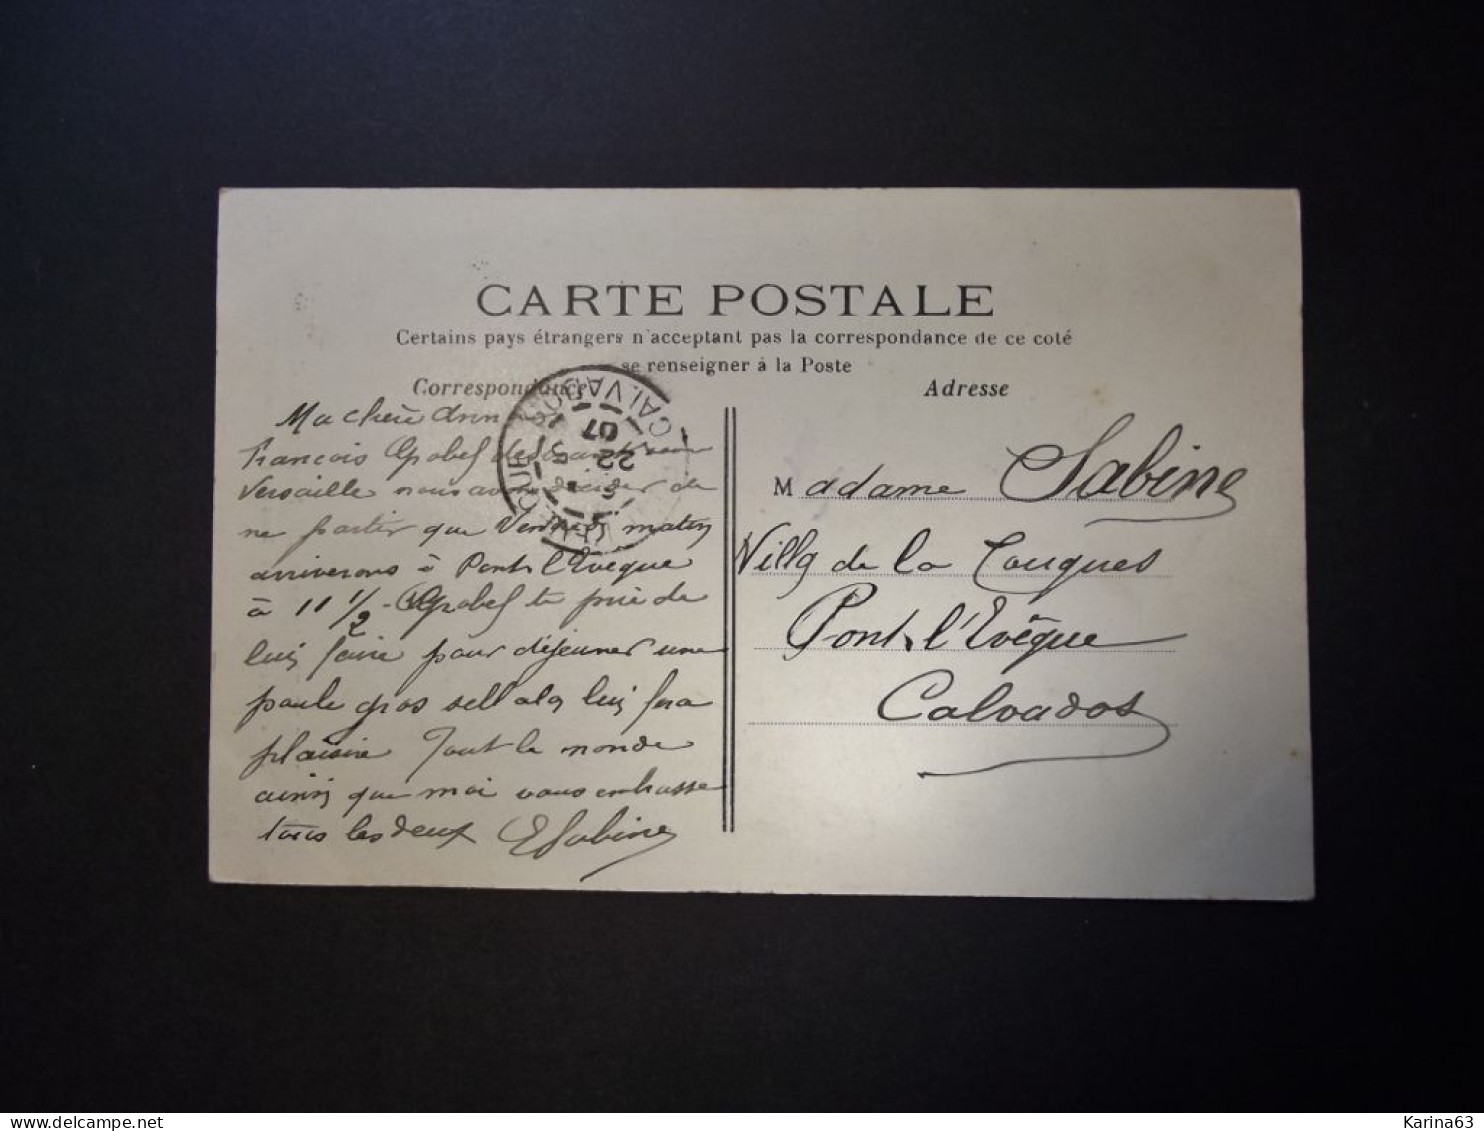 CARTE POSTALE
Certains pays étrangers n'acceptant pas la correspondance de ce coté
se renseigner à la Poste
Correspondance
Ma chère
François
Versaille nous de
ne partir que matin
arriverons à Pont l'Eveque
à 11 1/2 te prie de
lui faire pour déjeuner une
poule gros sell ala lui fera
plaisire Tout le monde
ainsi que moi vous embrasse
tous les deux ESabine
CALVADOS
22
07
Adresse
Madame Sabine
Villa de la Touques
Pont l'Evêque
Calvados
Karina63